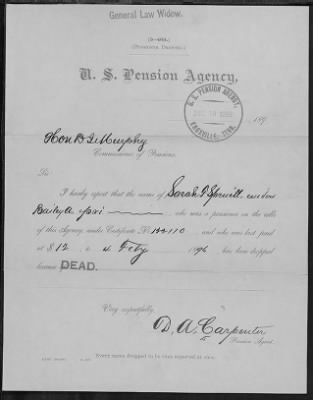 General Law Widow.
(3—081.)
(Pensioner Dropped.)
U. S. Pension Agency,
U. S. PENSION AGENCY,
KNOXVILLE, TENN.
, 189
Hon. D. I. Murphy
Commissioner of Pensions.
Sir:
I hereby report that the name of Sarah
who was a pensioner on the rolls
of this Agency, under Certificate No. and who was last paid
at $ 12, to 4 Feby, 1896, has been dropped
because DEAD.
Very respectfully,
D. A. Carpenter
Pension Agent.
Every name dropped to be thus reported at once.